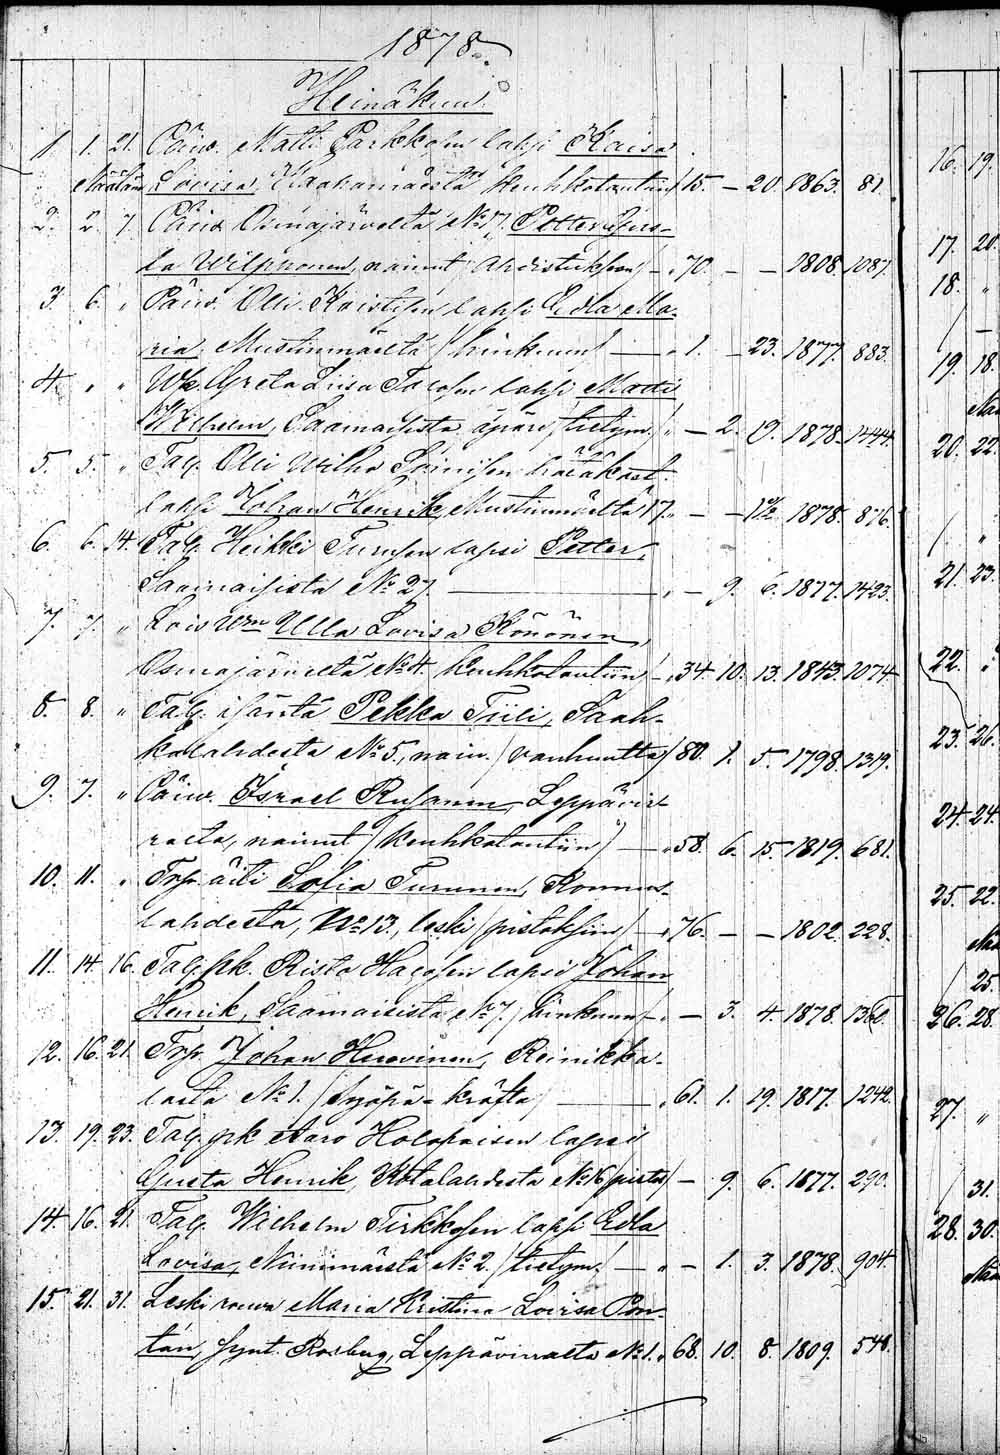 1878.
Heinäkuu.
1 1. 21. Päiw. Matti Parkkosen lapsi Kaisa
Lovisa, keuhkotautiin 15. – 20. 1863. 81.
2. 2. 7. Päiw. Osmajärveltä No 17, Petter
la Wilppunen, nainut / – 70. – – 1808. 1087.
3. 6. " Päiw. Olli lapsi Edla Ma-
ria, Mustinmäeltä / hinkuun / – " 1. – 23. 1877. 883.
4. " " Greta Liisa lapsi Matti
Wilhelm, Saamaisista äpärä / tietym. / " – 2. 19. 1878. 1444.
5. 5. " Tal. Olli Wilho hätäkast.
lapsi Johan Henrik, Mustinmäeltä 17. " – – 1/12 1878. 876.
6. 6. 14. Tal. Heikki Turusen lapsi Petter,
Saamaisista No 27. " – 9. 6. 1877. 1423.
7. 7. " Lois Ulla Lovisa Könönen,
Osmajärveltä No 4. keuhkotautiin / – " 34. 10. 13. 1843. 1074
8. 8. " Tal. isäntä Pekka Tiili, Saah-
kalahdesta No 5, nain. / vanhuutta / 80. 1. 5. 1798. 1319.
9. 7. " Päiw. Israel Rusanen, Leppävir-
ralta, nainut / keuhkotautiin / – " 58. 6. 15. 1819. 681.
10. 11. " Trp. äiti Sofia Turunen, Konnus-
lahdesta, No 13, leski / pistoksiin / – " 76. – – 1802. 228.
11. 14. 16. Tal. pk. Risto lapsi Johan
Henrik, Saamaisista No 7. / hinkuun / – " – 3. 4. 1878. 1360.
12. 16. 21. Trp. Johan Reinikka-
lasta No 1. / syöpä = kräfta / " 61. 1. 19. 1817. 1242.
13. 19. 23. Tal. pk Aaro Holopaisen lapsi
Gusta Henrik, Kotalahdesta No 16 / pistos / – 9. 6. 1877. 290.
14. 16. 21. Tal. Wilhelm Tirkkosen lapsi Edla
Lovisa, Niinimäestä No 2. / tietym. / – " – 1. 3. 1878. 904.
15. 21. 31. Leski rouva Maria Kristina Lovisa Pon-
tán, synt. Rosberg, Leppävirralta No 1. " 68. 10. 8. 1809. 548.
16. 19.
17. 20.
18. "
19. 18.
20. 22.
21. 23.
22. "
23. 26.
24. 24.
25. 22.
25.
26. 28.
27. "
31.
28. 30.